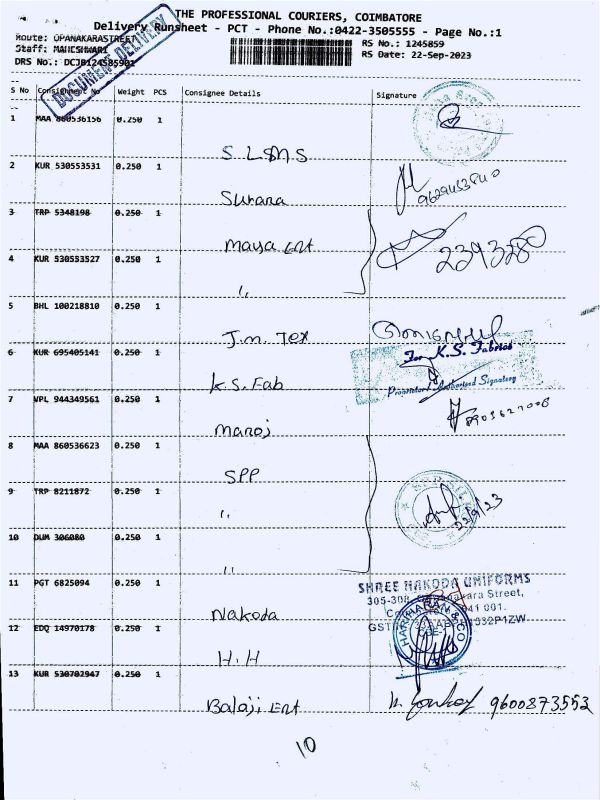 THE PROFESSIONAL COURIERS, COIMBATORE
Delivery Runsheet - PCT - Phone No.:0422-3505555 - Page No.:1
Route: OPANAKARASTREET
Staff: MAHESHWARI
DRS No.:
RS No.: 1245859
RS Date: 22-Sep-2023
DOCUMENT DELIVERY
S No Consignment No Weight PCS Consignee Details Signature
1 MAA 860536156 0.250 1
S L S M S
2 KUR 530553531 0.250 1
Surana
3 TRP 5348198 0.250 1
Maya Ent
239328
4 KUR 530533527 0.250 1
"
5 BHL 100218810 0.250 1
J.m. Tex
6 KUR 695405141 0.250 1
K.S. Fab
For K.S. Fabrics
Proprietor / Authorised Signatory
7 VPL 944349561 0.250 1
Manoj
8903627008
8 MAA 860536623 0.250 1
SPP
9 TRP 8211872 0.250 1
"
22/9/23
10 DUM 306080 0.250 1
"
11 PGT 6825094 0.250 1
Nakoda
SHREE NAKODA UNIFORMS
305-308, Street,
641 001.
12 EDQ 14970178 0.250 1
H.H
HARIHARAN & CO
CBE-1
13 KUR 530702947 0.250 1
Balaji Ent
9600873553
10